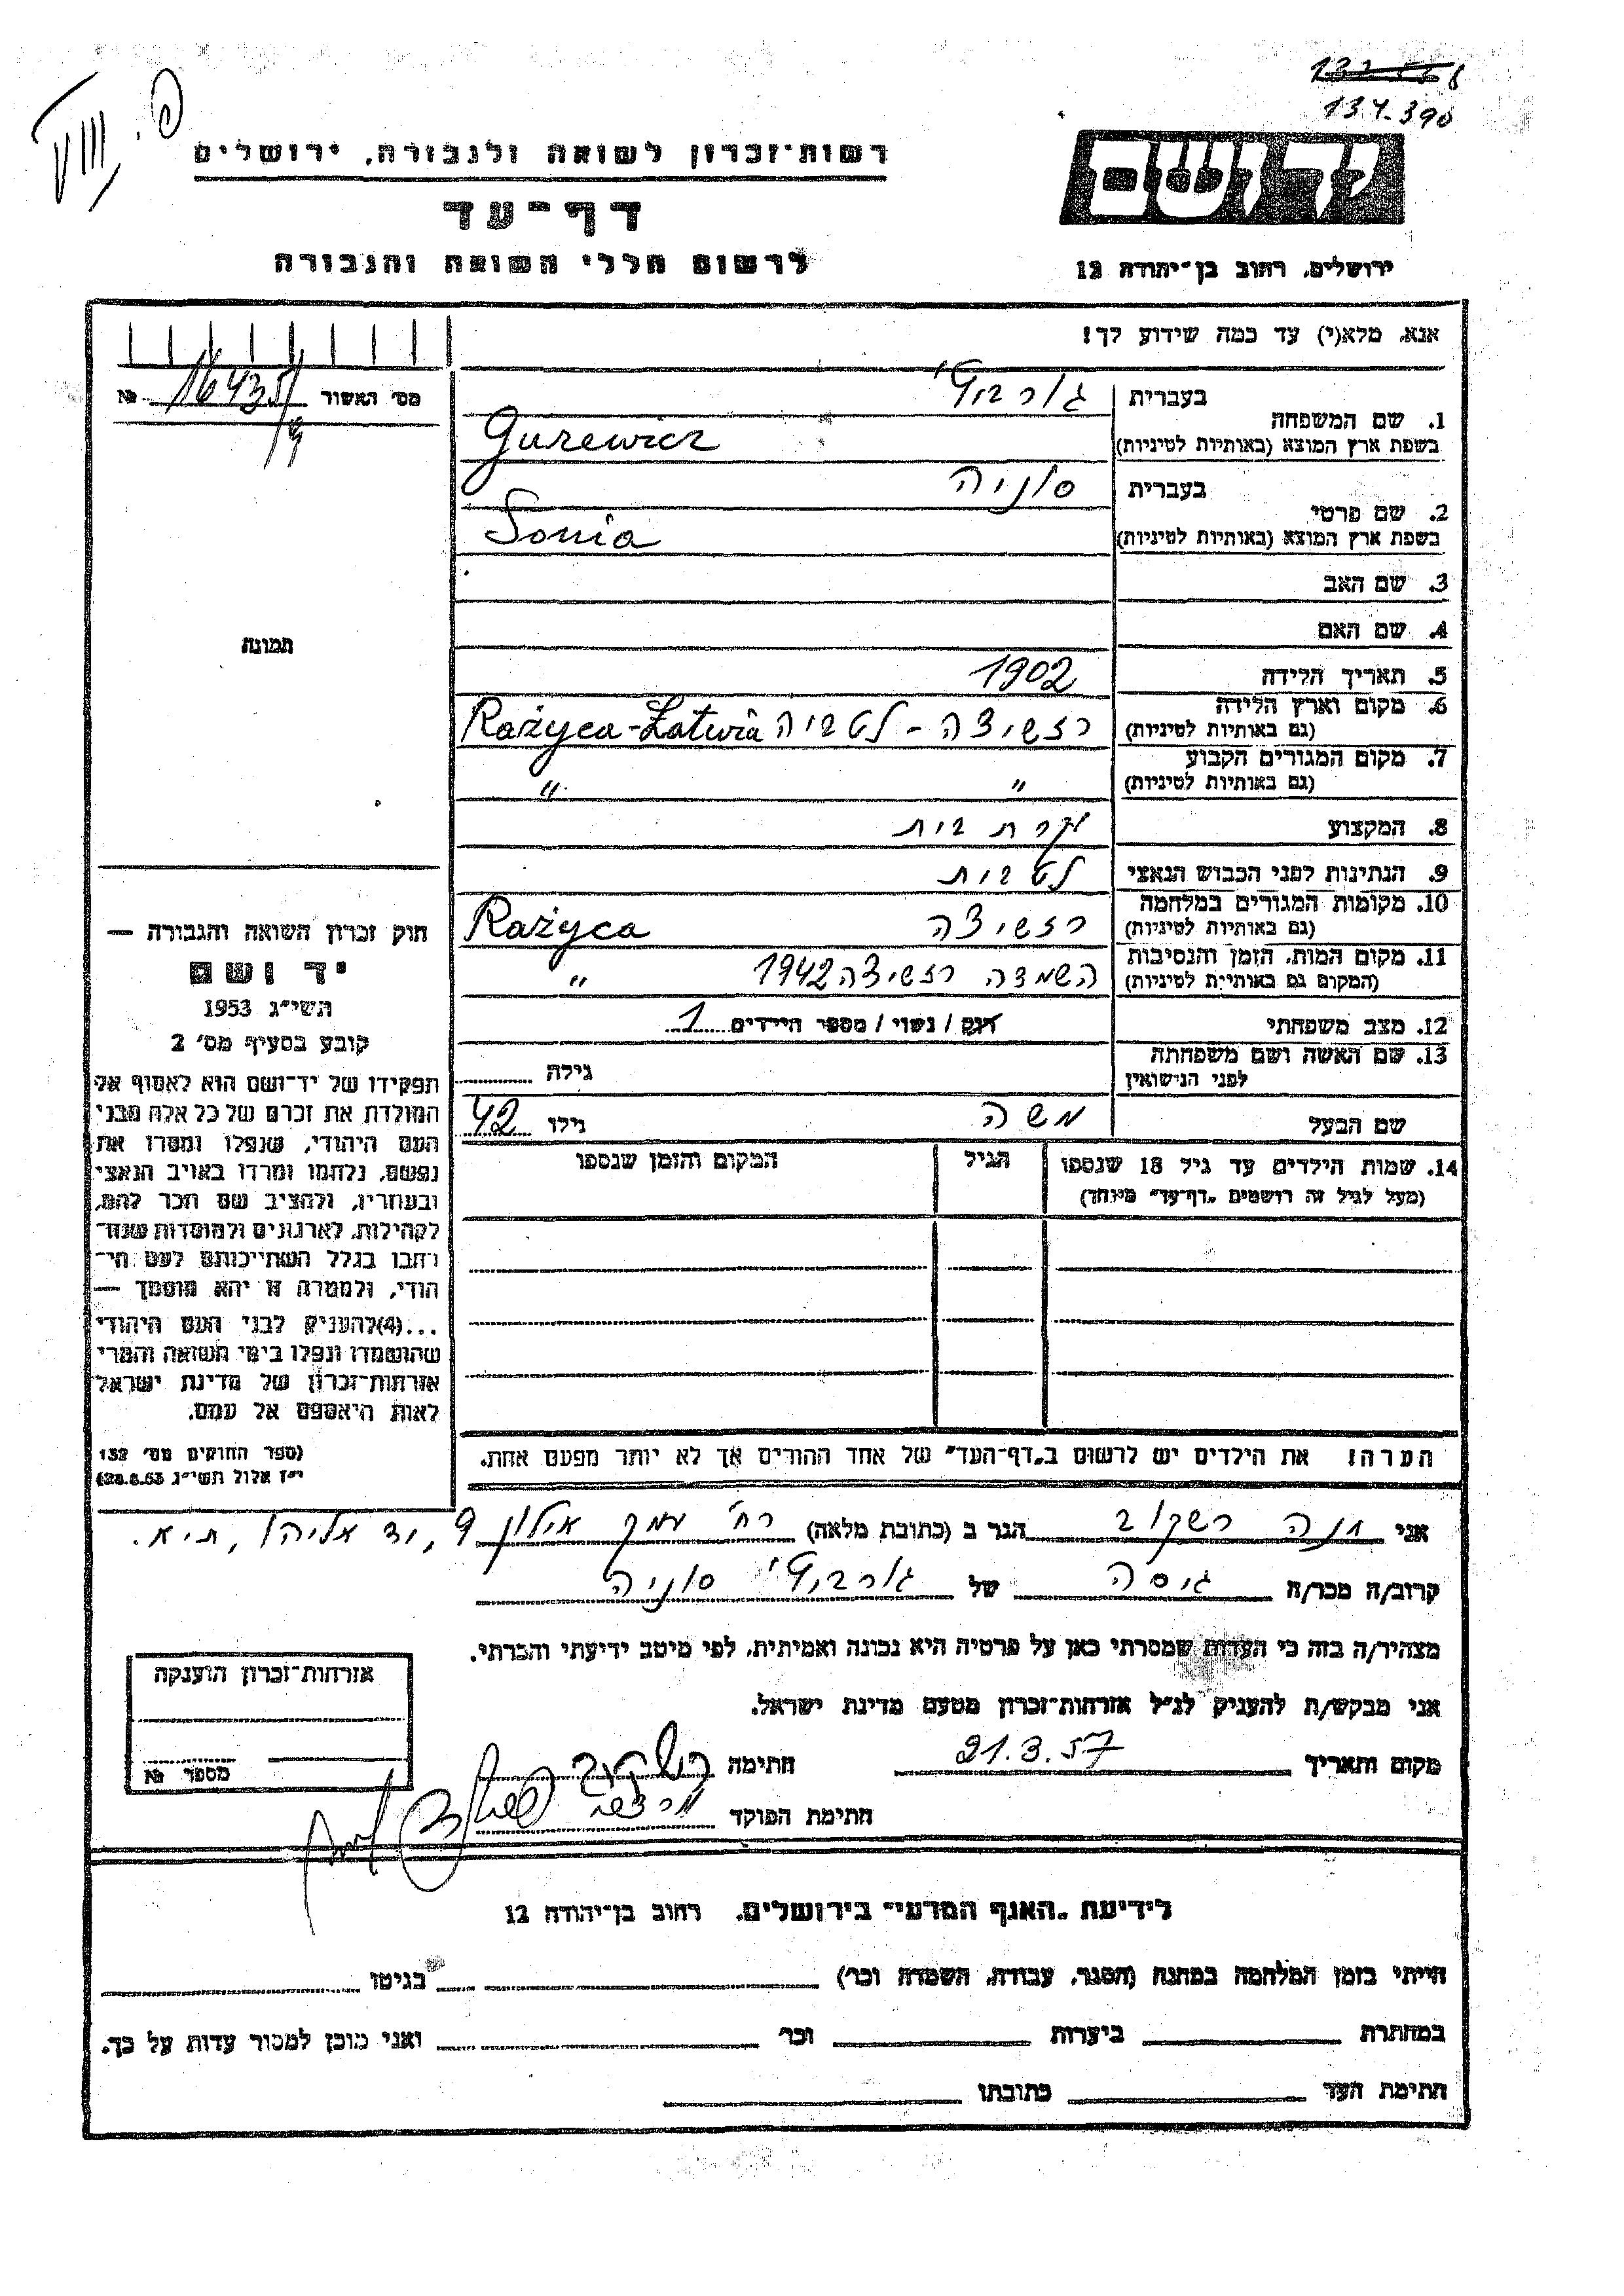 134.390
רשות־זכרון לשואה ולגבורה, ירושלים
דף־עד
לרשום חללי השואה והגבורה
יד ושם
ירושלים, רחוב בן־יהודה 12
אנא, מלא(י) עד כמה שידוע לך!
מס׳ האשור 16435 №
1. שם המשפחה
בעברית גורביץ׳
בשפת ארץ המוצא (באותיות לטיניות) Gurewicz
2. שם פרטי
בעברית סוניה
בשפת ארץ המוצא (באותיות לטיניות) Sonia
3. שם האב
4. שם האם
5. תאריך הלידה 1902
6. מקום וארץ הלידה
(גם באותיות לטיניות) רזשיצה - לטביה Rażyca-Łatwia
7. מקום המגורים הקבוע
(גם באותיות לטיניות) " "
8. המקצוע עקרת בית
9. הנתינות לפני הכבוש הנאצי לטבית
10. מקומות המגורים במלחמה
(גם באותיות לטיניות) רזשיצה Rażyca
11. מקום המות, הזמן והנסיבות
(המקום גם באותיות לטיניות) השמדה רזשיצה 1942 "
12. מצב משפחתי רווק / נשוי / מספר הילדים 1
13. שם האשה ושם משפחתה
לפני הנישואין גילה
שם הבעל משה גילו 42
14. שמות הילדים עד גיל 18 שנספו הגיל המקום והזמן שנספו
(מעל לגיל זה רושמים „דף־עד” מיוחד)
הערה! את הילדים יש לרשום ב„דף־העד” של אחד ההורים אך לא יותר מפעם אחת.
תמונה
חוק זכרון השואה והגבורה —
יד ושם
תשי״ג 1953
קובע בסעיף מס׳ 2
תפקידו של יד־ושם הוא לאסוף אל
המולדת את זכרם של כל אלה מבני
העם היהודי, שנפלו ומסרו את
נפשם, נלחמו ומרדו באויב הנאצי
ובעוזריו, ולהציב שם וזכר להם,
לקהילות, לארגונים ולמוסדות שנח־
רבו בגלל השתייכותם לעם הי־
הודי, ולמטרה זו יהא מוסמך —
...(4)להעניק לבני העם היהודי
שהושמדו ונפלו בימי השואה והמרי
אזרחות־זכרון של מדינת ישראל
לאות היאספם אל עמם.
(ספר החוקים מס׳ 132
י״ז אלול תשי״ג 28.8.53)
אני חנה רשקוב הגר ב (כתובת מלאה) רח׳ עמק אילון 9, יד אליהו, ת״א.
קרוב/ה מכר/ה גיסה של גורביץ׳ סוניה
מצהיר/ה בזה כי העדות שמסרתי כאן על פרטיה היא נכונה ואמיתית, לפי מיטב ידיעתי והכרתי.
אני מבקש/ת להעניק לנ״ל אזרחות־זכרון מטעם מדינת ישראל.
מקום ותאריך 21.3.57 חתימה רשקוב
חתימת הפוקד
אזרחות־זכרון הוענקה
מספר №
לידיעת „האגף המדעי” בירושלים, רחוב בן־יהודה 12
הייתי בזמן המלחמה במחנה (הסגר, עבודה, השמדה וכו׳) בגיטו
במחתרת ביערות וכו׳ ואני מוכן למסור עדות על כך.
חתימת העד כתובתו